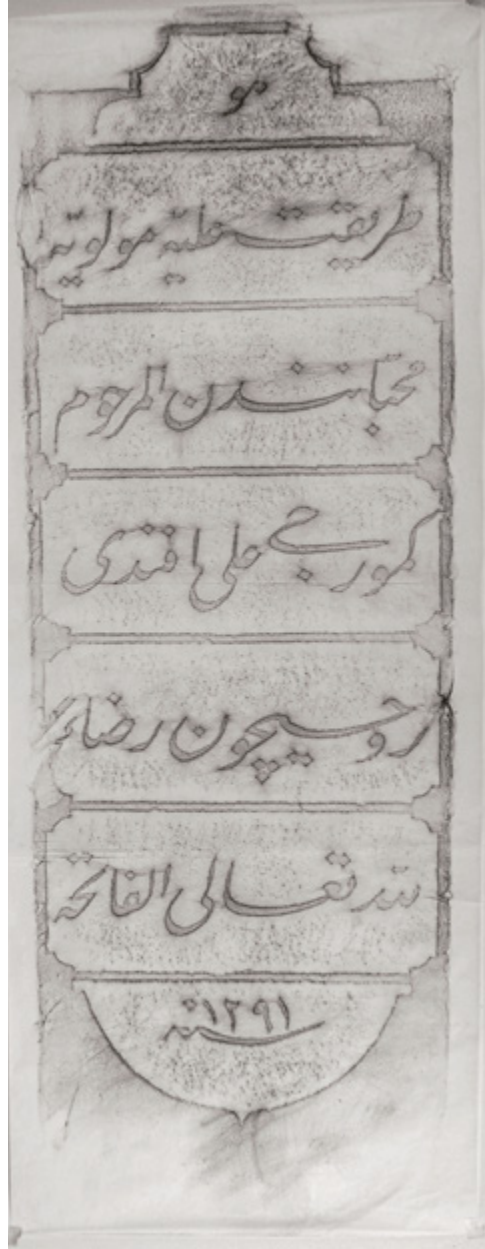 هو
طريقت عليّه مولويّه
محبّانندن المرحوم
كمورجى على افندى
روحيچون رضاءً
لله تعالى الفاتحه
سنه ١٢٩١